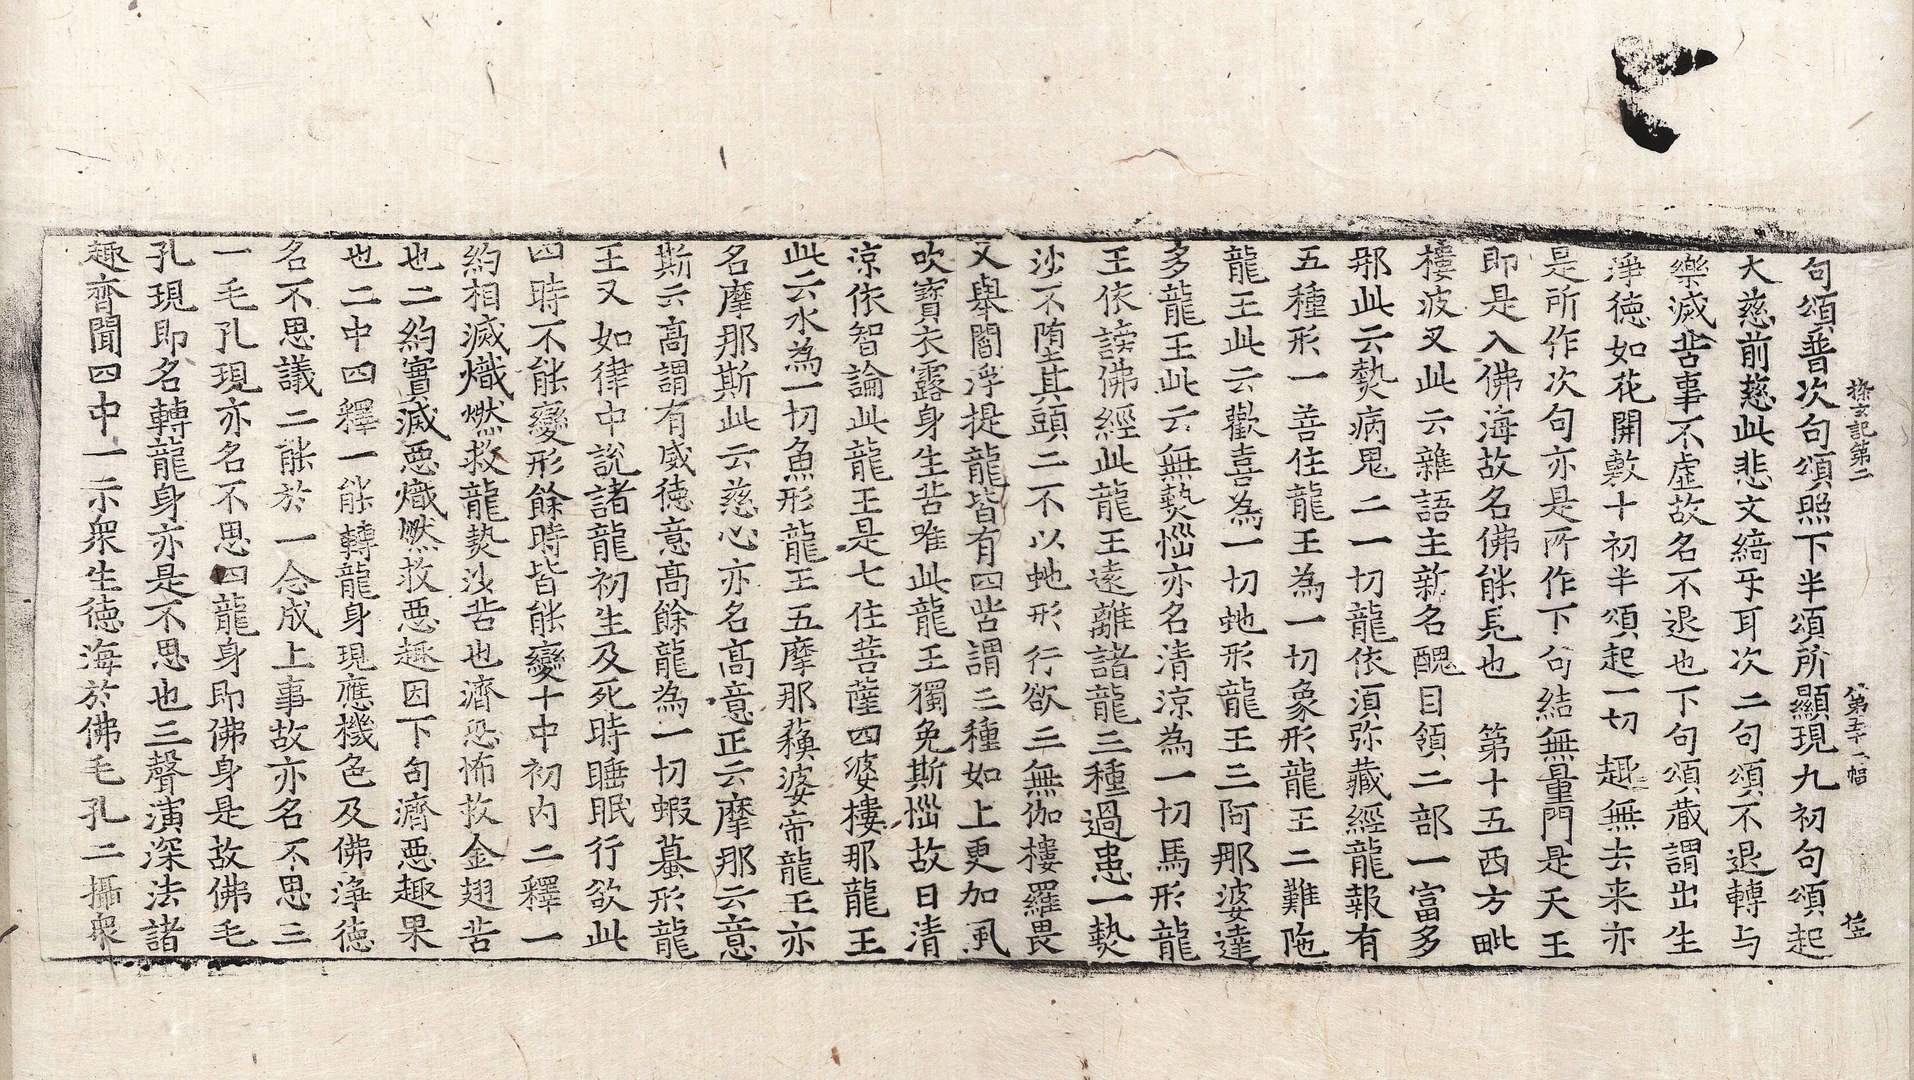 探玄記第二 第五十二幅
句頌普次句頌照下半頌所顯現九初句頌起
大慈前慈此悲文綺牙耳次二句頌不退轉与
樂滅苦事不虛故名不退也下句頌蔵謂出生
淨德如花開敷十初半頌起一切趣無去来亦
是所作次句亦是所作下句結無量門是天王
即是入佛海故名佛能見也 第十五西方毗
樓波叉此云雜語主新名醜目領二部一富多
那此云㷫病鬼二一切龍依湏弥藏經龍報有
五種形一善住龍王為一切象形龍王二難陁
龍王此云歡喜為一切虵形龍王三阿那婆達
多龍王此云無㷫惱亦名清涼為一切馬形龍
王依謗佛經此龍王遠離諸龍三種過患一㷫
沙不堕其頭二不以虵形行欲三無伽樓羅畏
又舉閻浮提龍皆有四苦謂三種如上更加風
吹寳衣露身生苦唯此龍王獨免斯惱故曰清
涼依智論此龍王是七住菩薩四婆樓那龍王
此云水為一切魚形龍王五摩那蘓婆帝龍王亦
名摩那斯此云慈心亦名髙意正云摩那云意
斯云髙謂有威徳意髙餘龍為一切蝦蟇形龍
王又如律中説諸龍初生及死時睡眠行欲此
四時不能變形餘時皆能變十中初内二釋一
約相滅熾燃救龍㷫沙苦也濟恐怖救金翅苦
也二約實滅惡熾燃救惡趣因下句濟惡趣果
也二中四釋一能轉龍身現應機色及佛淨徳
名不思議二能於一念成上事故亦名不思三
一毛孔現亦名不思四龍身即佛身是故佛毛
孔現即名轉龍身亦是不思也三聲演深法諸
趣齊聞四中一示衆生徳海於佛毛孔二攝衆